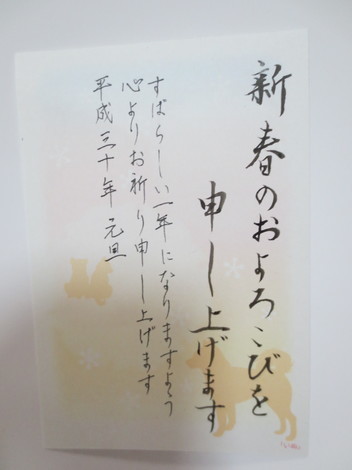 新春のおよろこびを
申し上げます
すばらしい一年になりますよう
心よりお祈り申し上げます
平成三十年 元旦